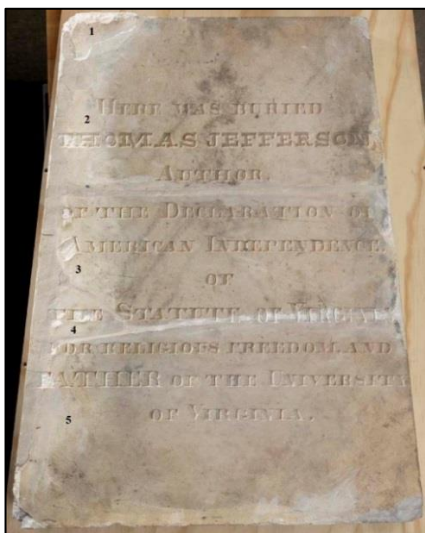 1
HERE WAS BURIED
2
THOMAS JEFFERSON
AUTHOR
OF THE DECLARATION OF
AMERICAN INDEPENDENCE
3
OF
THE STATUTE OF VIRGINIA
4
FOR RELIGIOUS FREEDOM, AND
FATHER OF THE UNIVERSITY
5
OF VIRGINIA.